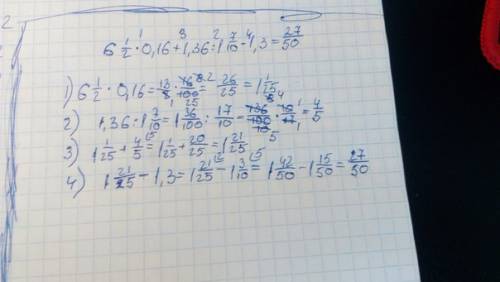 6 1/2 · 0,16 + 1,36 : 1 7/10 - 1,3 = 27/50
1) 6 1/2 · 0,16 = 13/2 · 16/100 = 26/25 = 1 1/25
2) 1,36 : 1 7/10 = 1 36/100 : 17/10 = 136/100 · 10/17 = 4/5
3) 1 1/25 + 4/5 = 1 1/25 + 20/25 = 1 21/25
4) 1 21/25 - 1,3 = 1 21/25 - 1 3/10 = 1 42/50 - 1 15/50 = 27/50